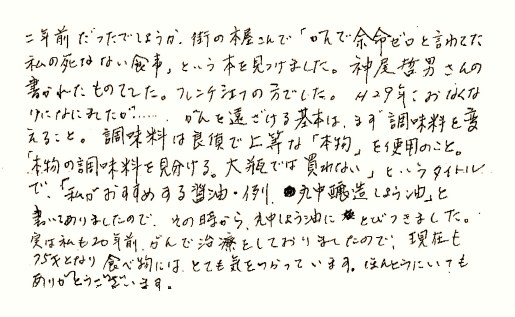 二年前だったでしょうか、街の本屋さんで「がんで余命ゼロと言われた
私の死なない食事」という本を見つけました。神尾哲男さんの
書かれたものでした。フレンチシェフの方でした。H29年におなくな
りになられたが……。がんを遠ざける基本は、まず調味料を変
えること。調味料は良質で上等な「本物」を使用のこと。
「本物の調味料を見分ける。大瓶では買わない」というタイトル
で、「私がおすすめする醤油・例、丸中醸造しょう油」と
書いてありましたので、その時から、丸中しょう油にとびつきました。
実は私も20年前、がんで治療をしておりましたので、現在も
75才となり食べ物には、とても気をつかっています。ほんとうにいつも
ありがとうございます。